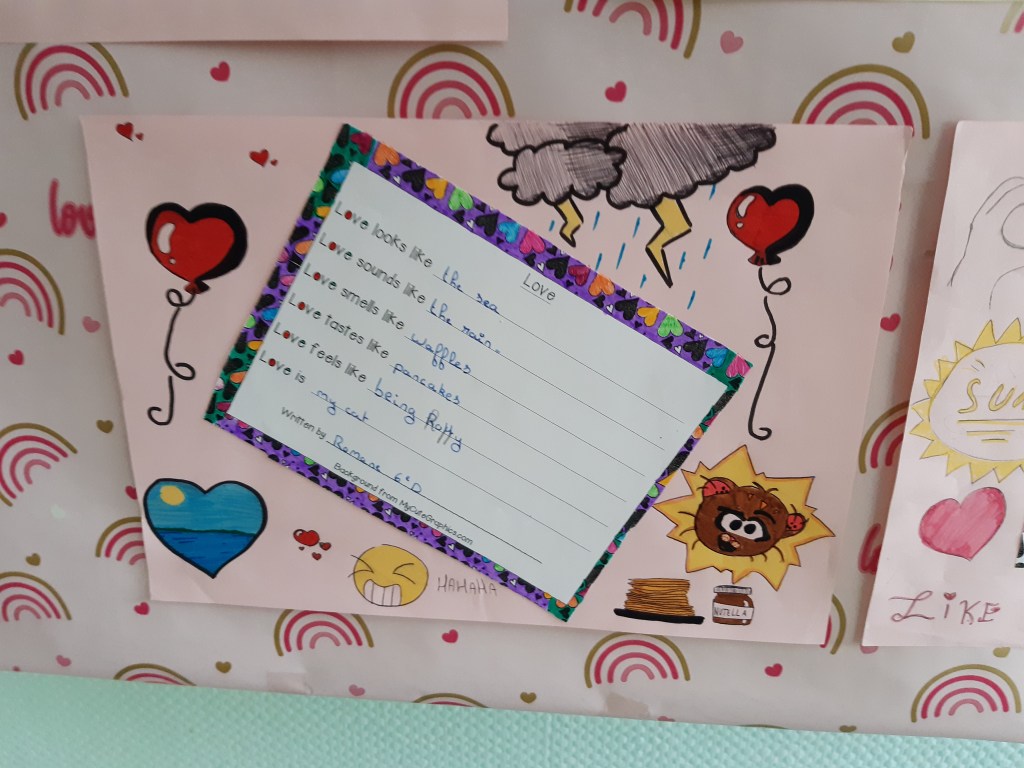 Love
Love looks like the sea
Love sounds like the rain.
Love smells like waffles
Love tastes like pancakes
Love feels like being Happy
Love is my cat
Written by Romane 6eD
Background from MyCuteGraphics.com
HAHAHA
NUTELLA
love
SUN
LIKE